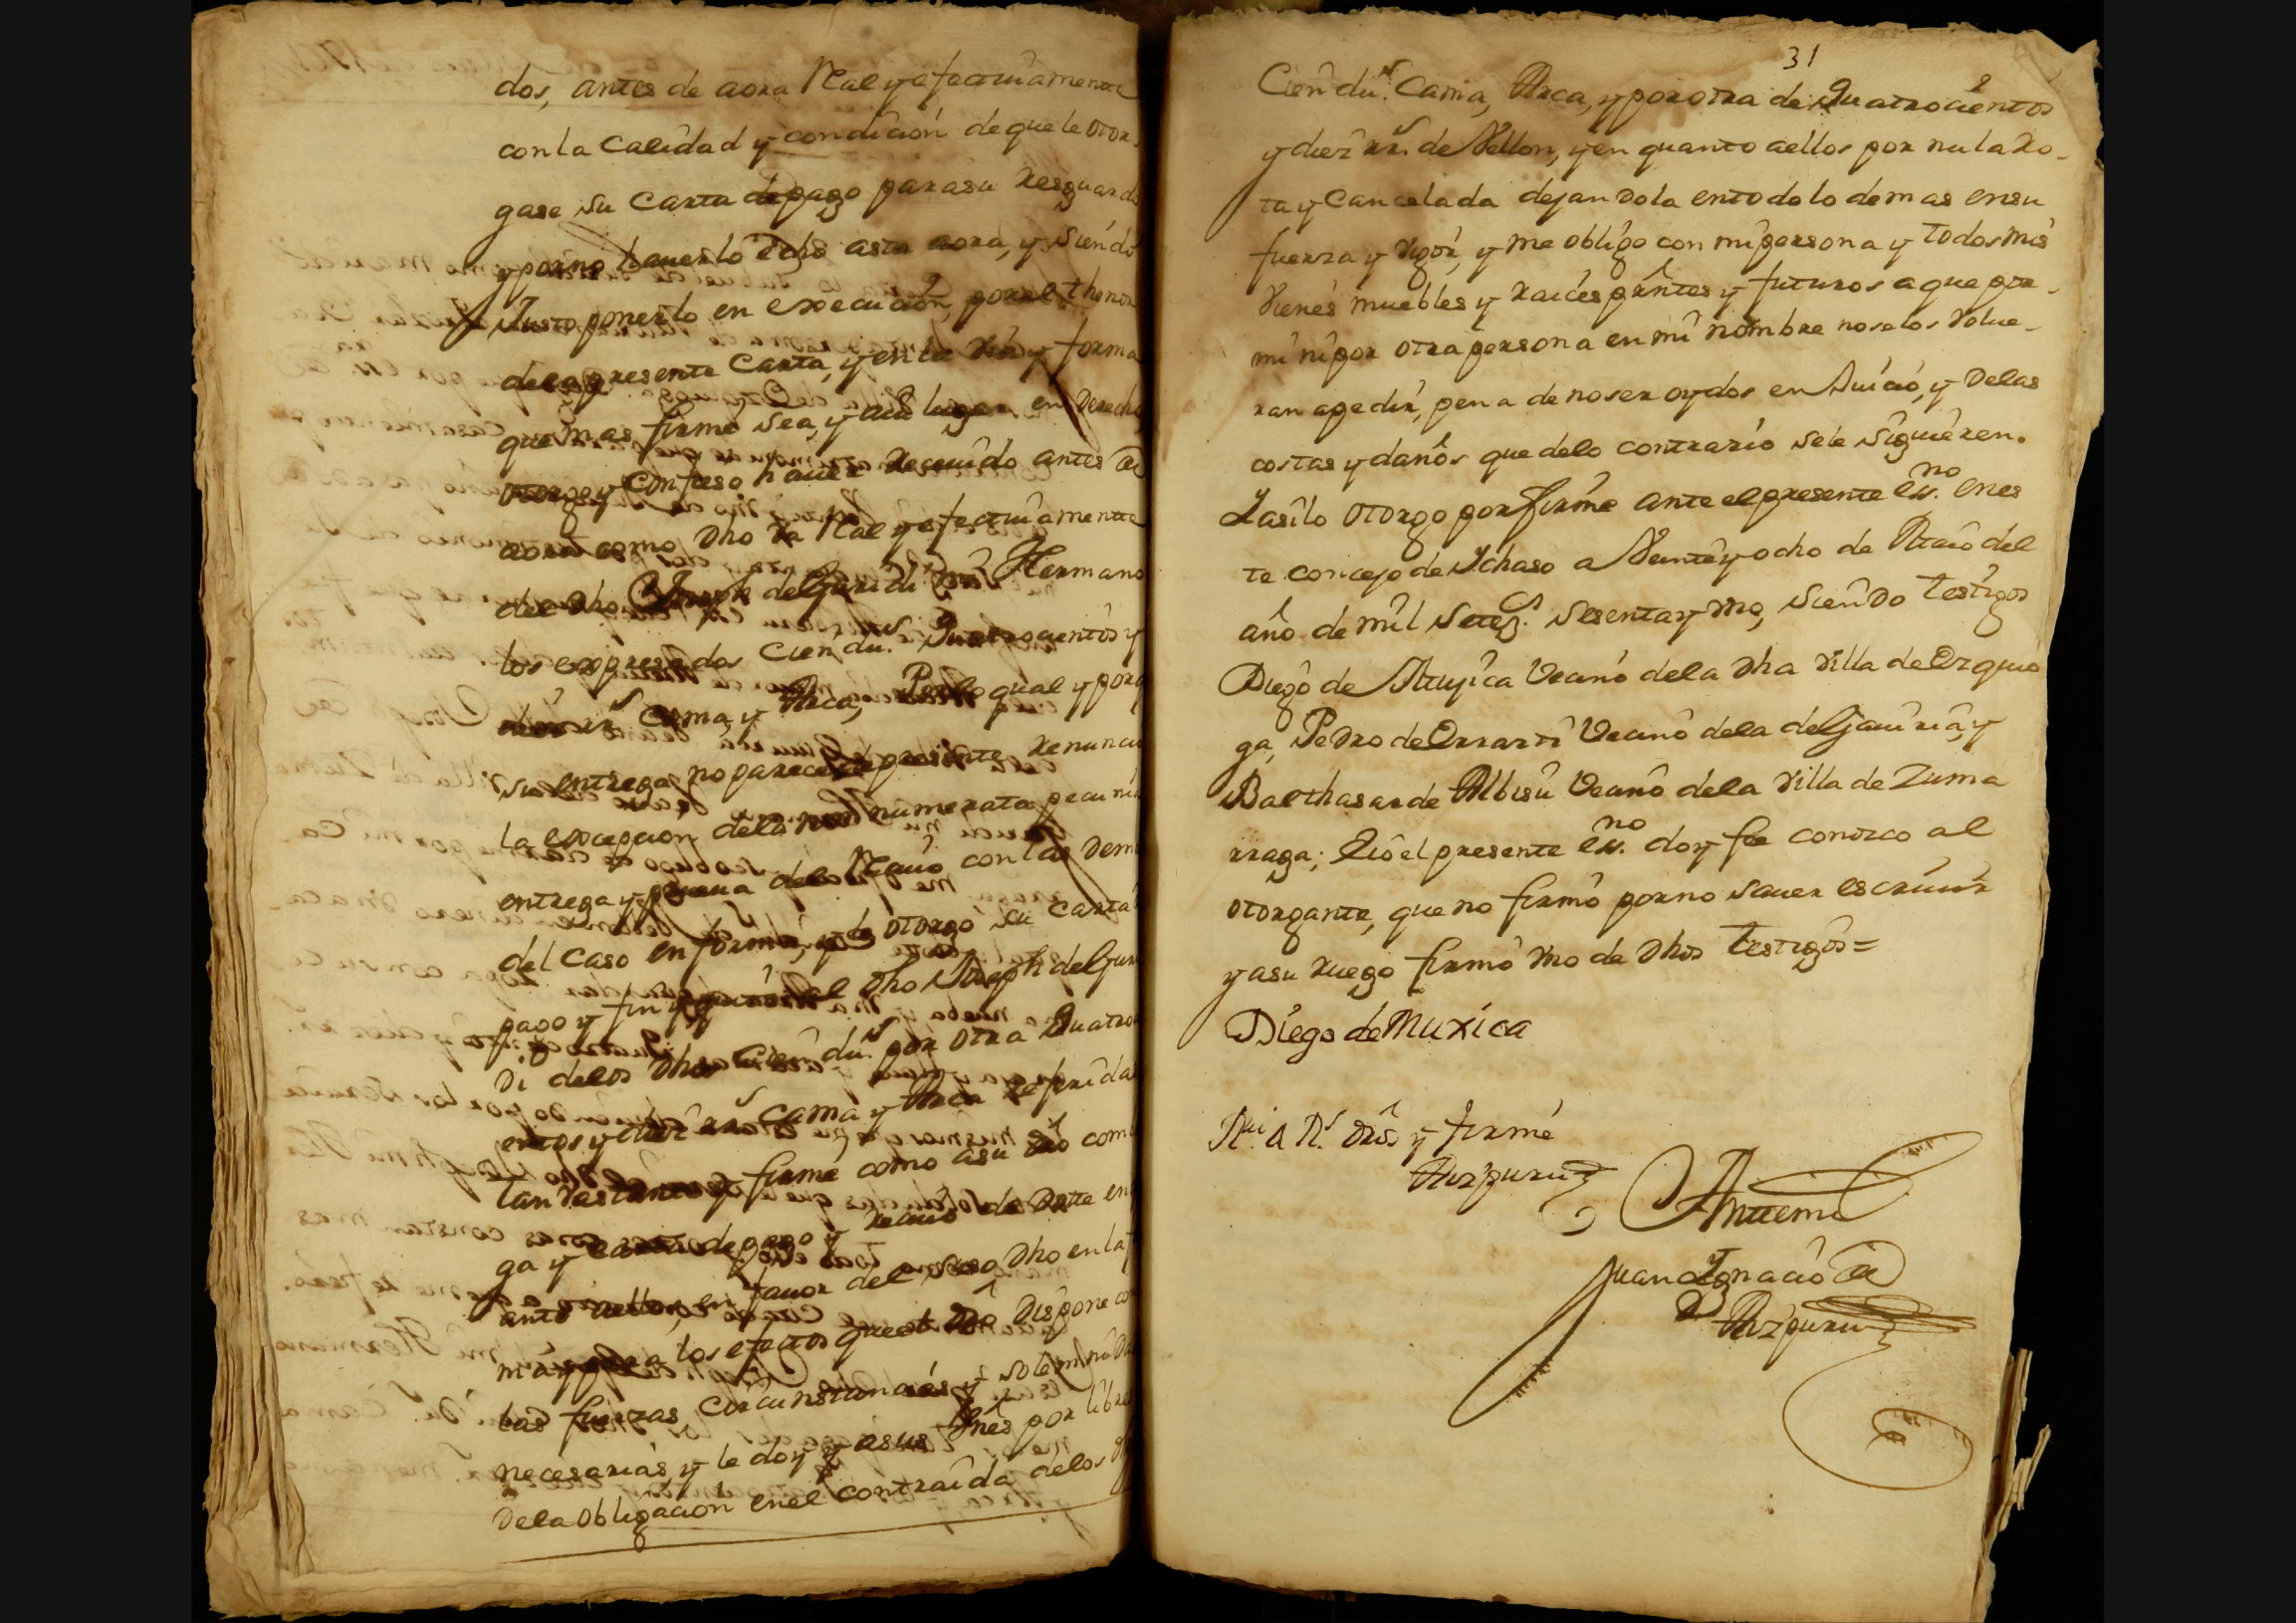 dos, antes de aora Real y efectiuamente
con la Calidad y condicion de que le otor
gase su Carta de pago para su resguardo
y por no hauerlo echo asta aora, y siendo
Justo ponerlo en execucion, por el thenor
de la presente Carta, y en la via y forma
que mas firme sea, y aia lugar en Derecho
otorgo y confieso hauer receuido antes de
aora como dho va Real y efectiuamente
del dho Joseph de Guridi mi Hermano
los expresados Cien du.s Quatrocientos y
diez rr.s Cama, y Arca, Por lo qual y porq
su entrega no parece de presente renuncio
la excepcion de la non numerata pecunia
entrega y prueua del Reciuo con las dema
del caso en forma, y le otorgo su carta
pago y finiquito al dho Joseph de Guri
di de los dhos Cien du.s por otra Quatroci
entos y diez rr.s Cama y Arca referidas
tan vastante y firme como a su dro comb
ga y carta de pago y reciuo de Dote en q
anto a ellos, en fauor del suso dho en la f
ma y para los efectos que el dro Dispone con
las fuerzas, Circunstancias y solemnida
necesarias, y le doy y a sus Vnes por libre
de la obligacion en el contraida de los dh
31
Cien du.s Cama, Arca, y por otra de Quatrocientos
y diez rr.s de Vellon, y en quanto a ellos por nula ro-
ta y Cancelada dejandola en todo lo demas en su
fuerza y vigor, y me obligo con mi persona y todos mis
vienes muebles y raices prntes y futuros a que por
mi ni por otra persona en mi nombre no se los volue-
ran a pedir, pena de no ser oydos en Juicio, y de las
costas y daños que de lo contrario se le siguieren.
Y asi lo otorgo por firme ante el presente ess.no en es
te concejo de Ichaso a Veinte y ocho de Maio del
año de mil setez.s sesenta y vno, siendo testigos
Diego de Muxica Vecino de la dha Villa de Ezquio
ga, Pedro de Errarti Vecino de la de Gauiria, y
Balthasar de Albisu Vecino de la Villa de Zuma
rraga; Eio el presente ess.no doy fee conozco al
otorgante, que no firmó por no sauer escriuir
y a su ruego firmó vno de dhos testigos=
Diego de Muxica
R.ui a R.s dros y firmé
Aizpuru
Antemi
Juan Ygnacio de
Aizpuru